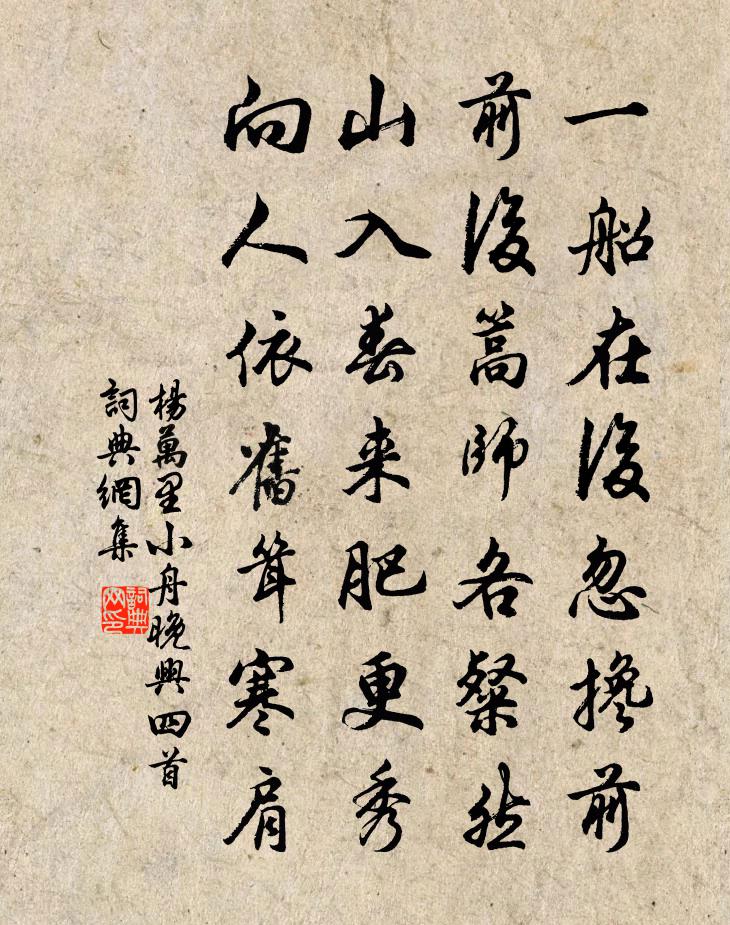 一船在後忽攙前
前後篙師各粲然
山入春来肥更秀
向人依舊聳寒肩
楊萬里小舟晚興四首
詞典網集
詞典
网印